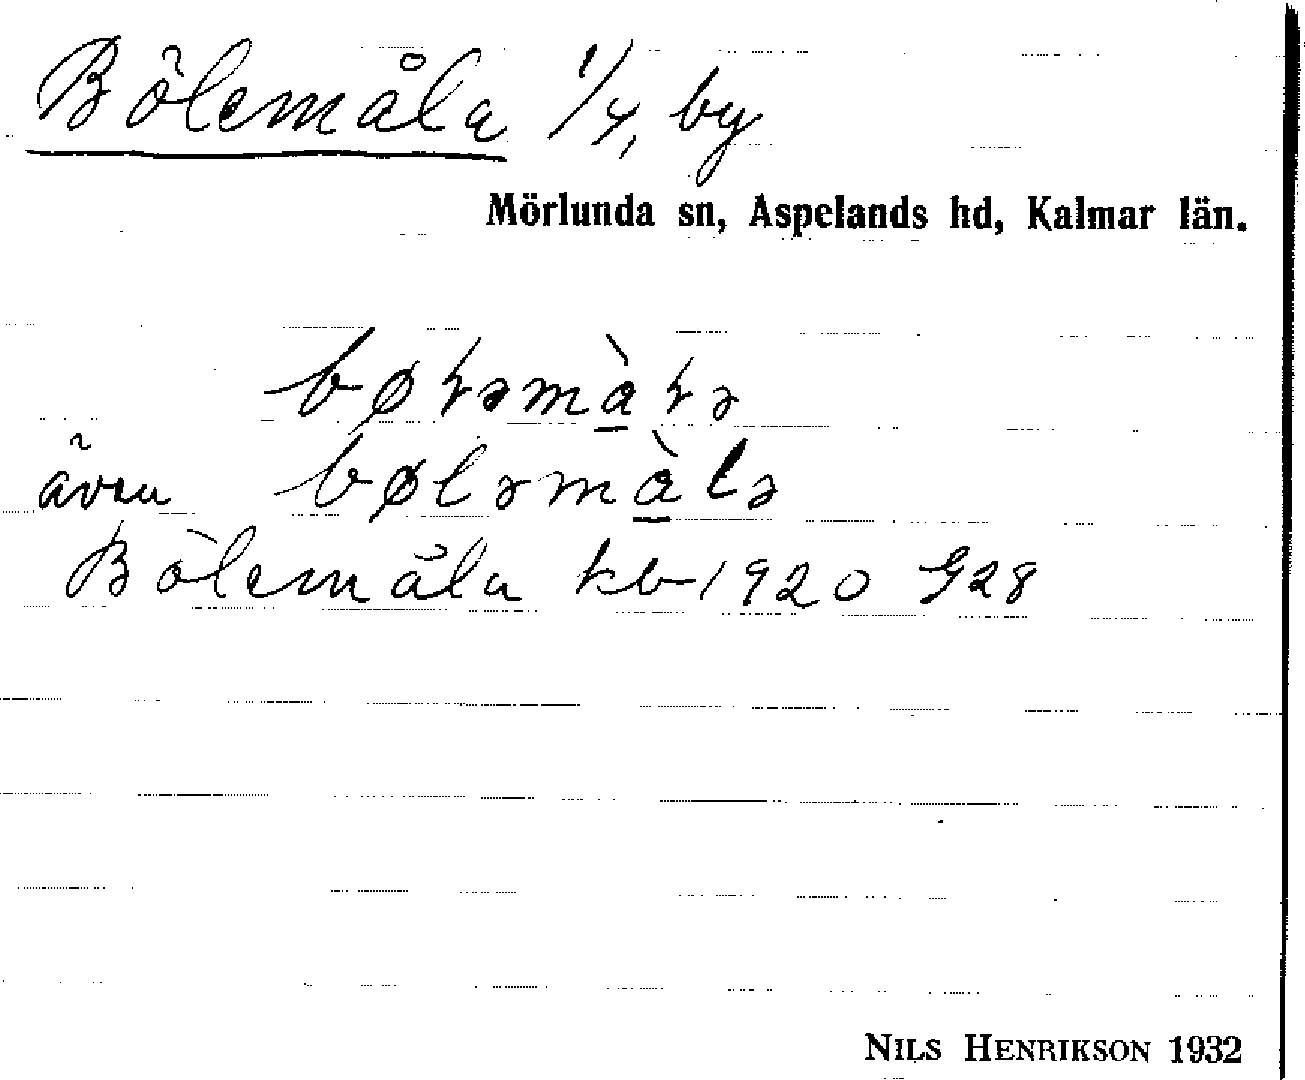 Bölemåla 1/4, by
Mörlunda sn, Aspelands hd, Kalmar län.
även bøləmàlə
Bölemåla kb 1920 G28
NILS HENRIKSON 1932